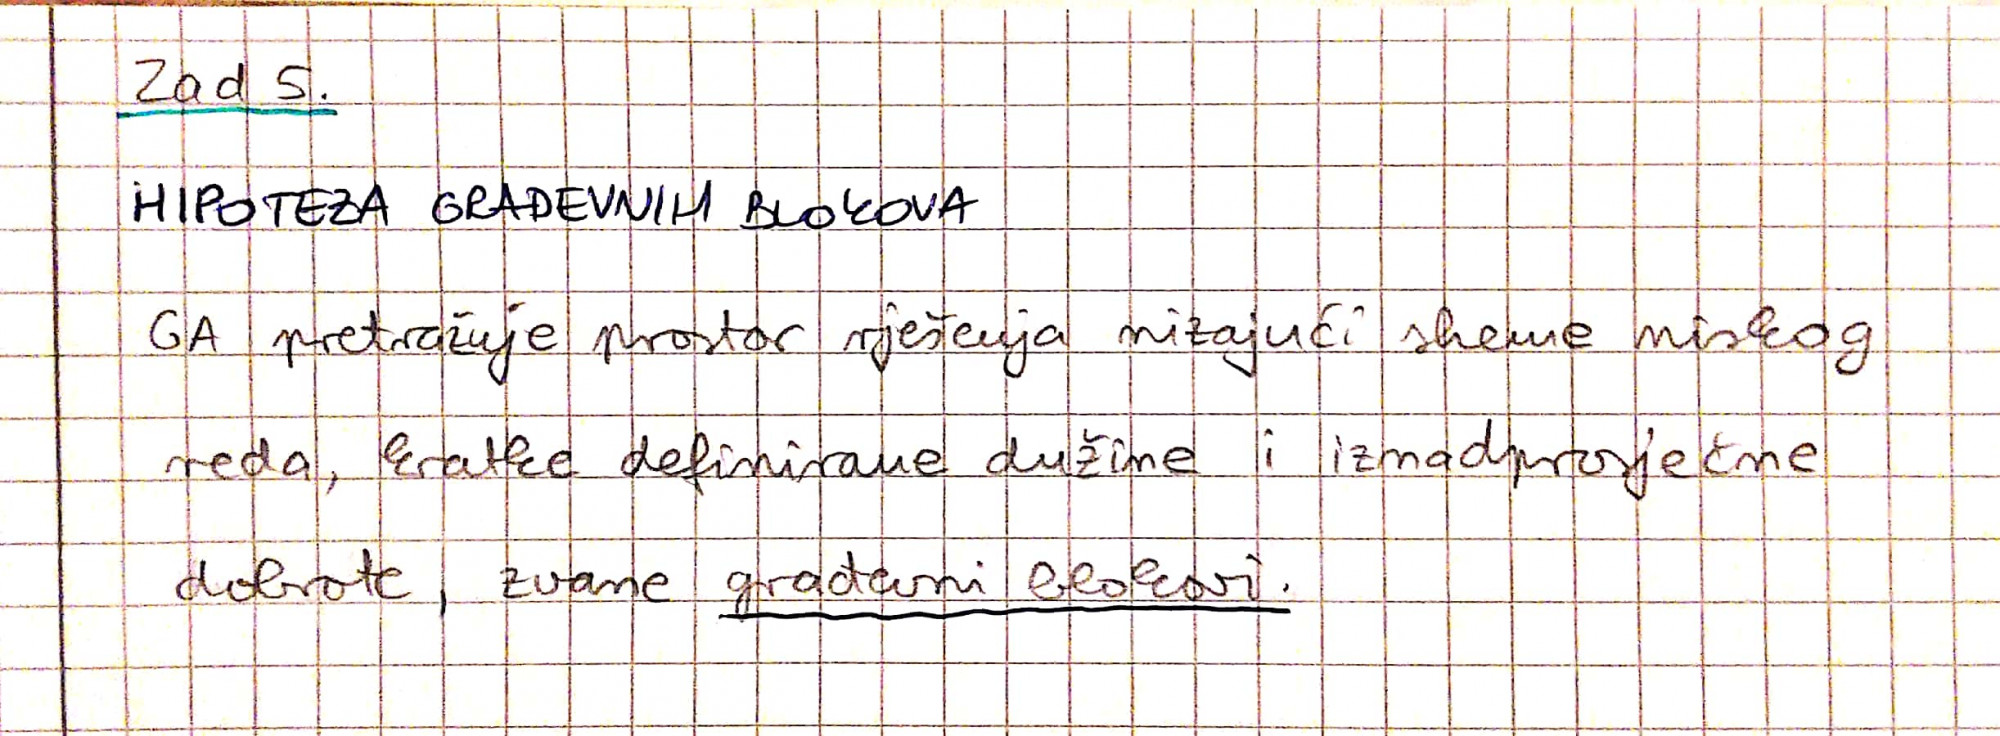 Zad 5.
HIPOTEZA GRAĐEVNIH BLOKOVA
GA pretražuje prostor rješenja nizajući sheme niskog
reda, kratke definirane dužine i iznadprosječne
dobrote, zvane građevni blokovi.